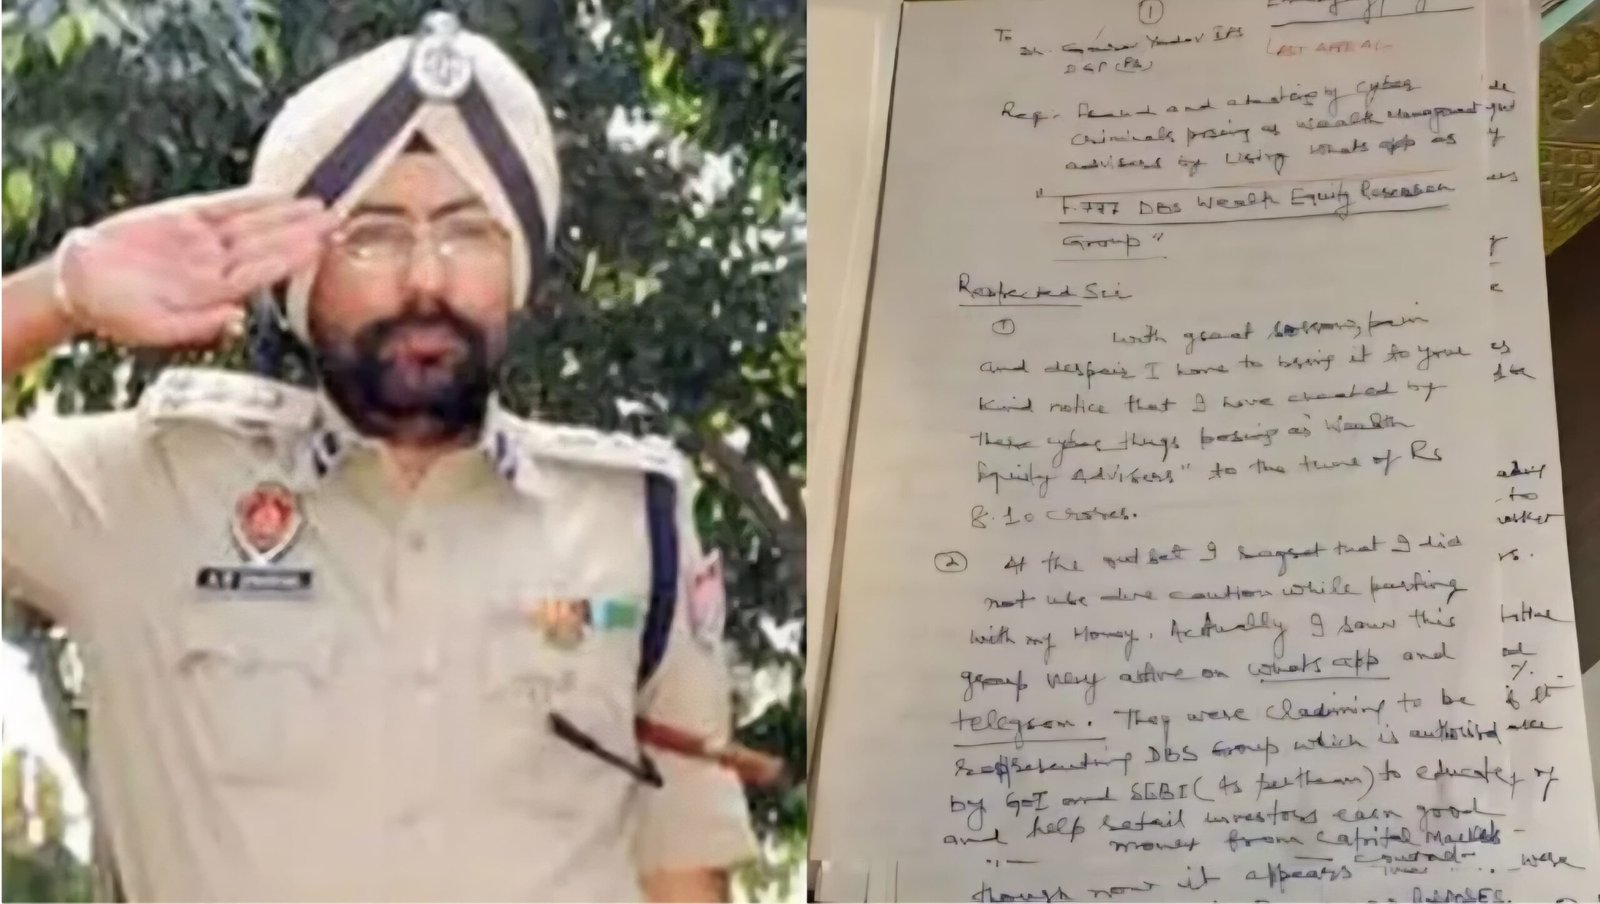 1
To
Sh. Gaurav Yadav IPS
DGP (PB)
LAST APPEAL
Reg:- Fraud and cheating by Cyber
criminals posing as Wealth Management
advisers by using Whats app as
" F.777 DBS Wealth Equity Research
Group "
Respected Sir
1 With great pain
and despair I have to bring it to your
kind notice that I have cheated by
these cyber thugs posing as Wealth
Equity Advisers" to the tune of Rs
8.10 crores.
2 At the out set I regret that I did
not use due caution while parting
with my Money. Actually I saw this
group very active on whats app and
telegram. They were claiming to be
representing DBS Group which is authorised
by GOI and SEBI (As per them) to educate
and help retail investors earn good
money from Capital Markets
though now it appears